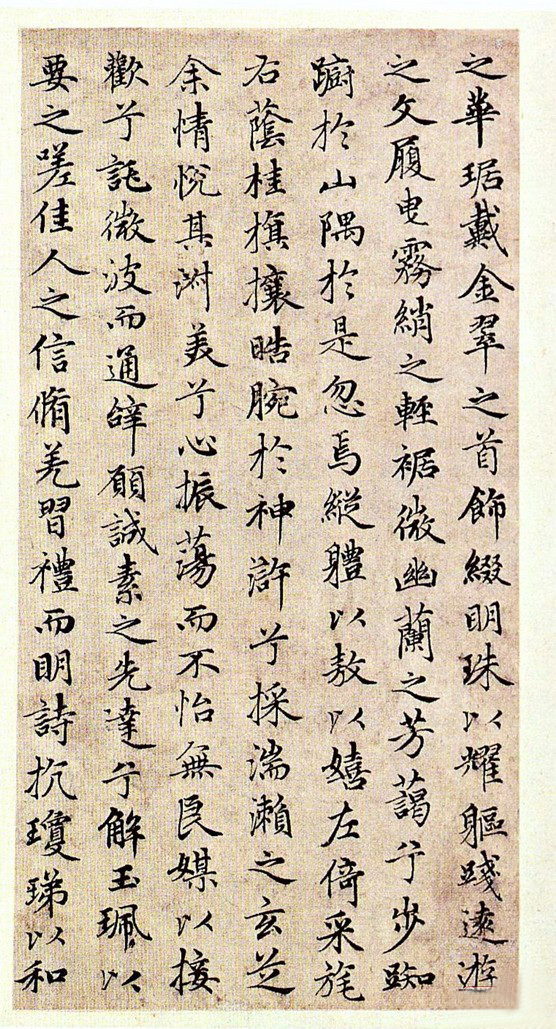 之華琚戴金翠之首飾綴明珠以耀軀踐遠游
之文履曳霧綃之輕裾微幽蘭之芳藹兮步踟
躕於山隅於是忽焉縱體以敖以嬉左倚采旄
右蔭桂旗攘皓腕於神滸兮採湍瀨之玄芝
余情悅其淑美兮心振蕩而不怡無良媒以接
歡兮託微波而通辭願誠素之先達兮解玉珮以
要之嗟佳人之信脩羌習禮而明詩抗瓊珶以和